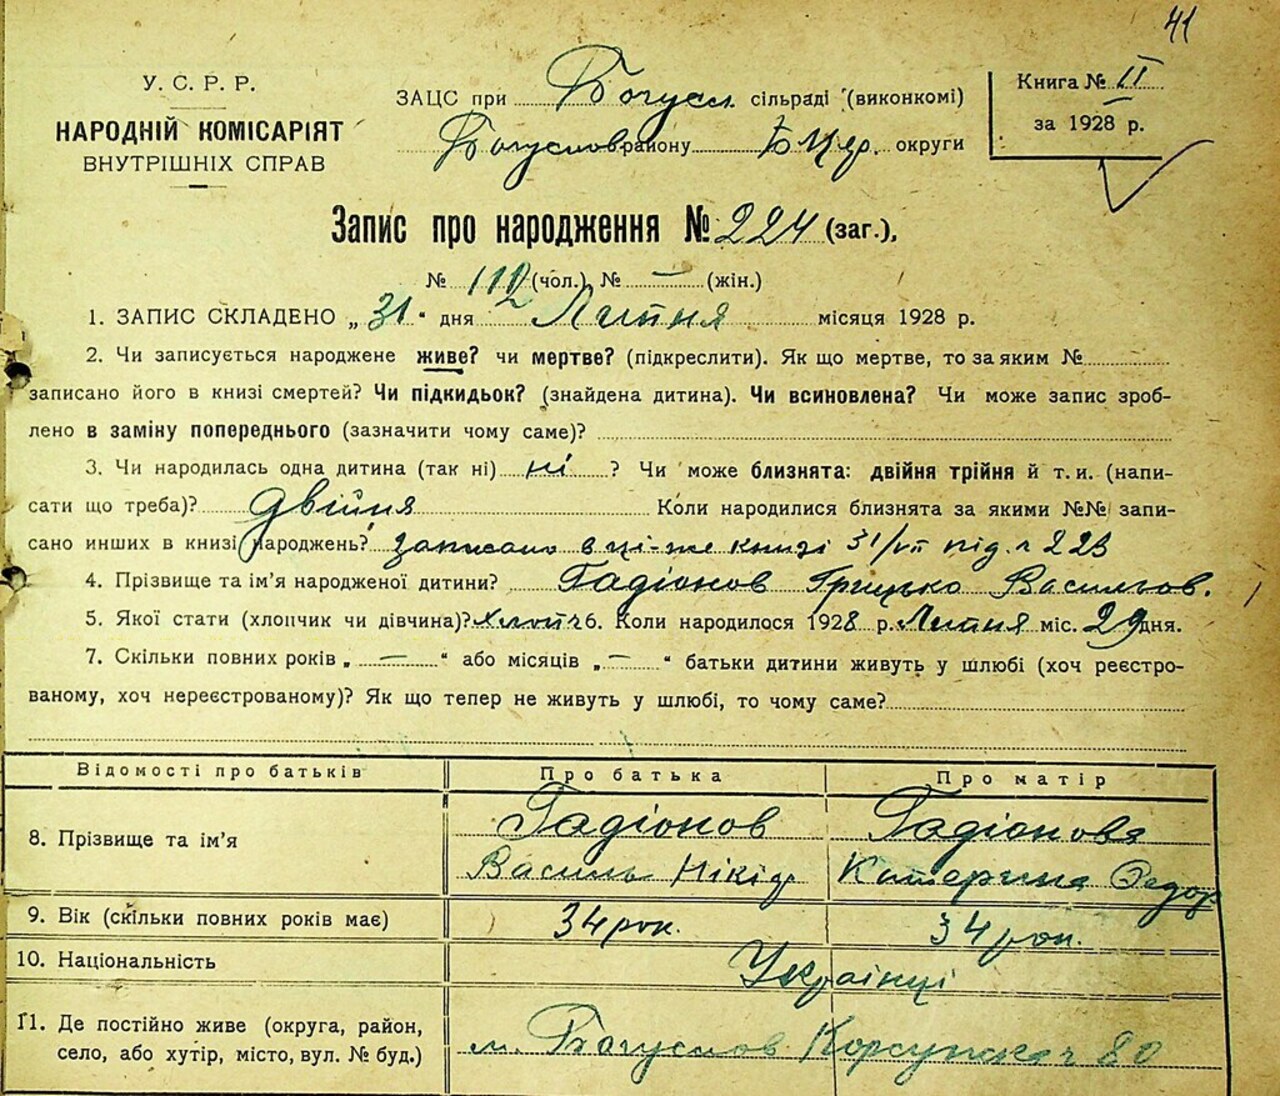 41
У. С. Р. Р.
НАРОДНІЙ КОМІСАРІЯТ
ВНУТРІШНІХ СПРАВ
ЗАЦС при Богусл. сільраді (виконкомі)
Богуслов району БЦер. округи
Книга № II
за 1928 р.
Запис про народження № 224 (заг.),
№ 112 (чол.) № — (жін.)
1. ЗАПИС СКЛАДЕНО „ 31 “ дня Липня місяця 1928 р.
2. Чи записується народжене живе? чи мертве? (підкреслити). Як що мертве, то за яким №
записано його в книзі смертей? Чи підкидьок? (знайдена дитина). Чи всиновлена? Чи може запис зроб-
лено в заміну попереднього (зазначити чому саме)?
3. Чи народилась одна дитина (так ні) ні ? Чи може близнята: двійня трійня й т. и. (напи-
сати що треба)? Двійня Коли народилися близнята за якими №№ запи-
сано инших в книзі народжень? записано в ці-же книзі 31/VII під. ч 223
4. Прізвище та ім’я народженої дитини? Гадіонов Грицько Васильов.
5. Якої стати (хлопчик чи дівчина)? Хлопч 6. Коли народилося 1928 р. Липня міс. 29 дня.
7. Скільки повних років „ — “ або місяців „ — “ батьки дитини живуть у шлюбі (хоч реєстро-
ваному, хоч нереєстрованому)? Як що тепер не живуть у шлюбі, то чому саме?
Відомості про батьків Про батька Про матір
8. Прізвище та ім’я Гадіонов Гадіонова
Василь Нікід Катерина Федор
9. Вік (скільки повних років має) 34 рок. 34 рок.
10. Національність Українці
11. Де постійно живе (округа, район,
село, або хутір, місто, вул. № буд.) м. Богуслов Корсунська ч 80